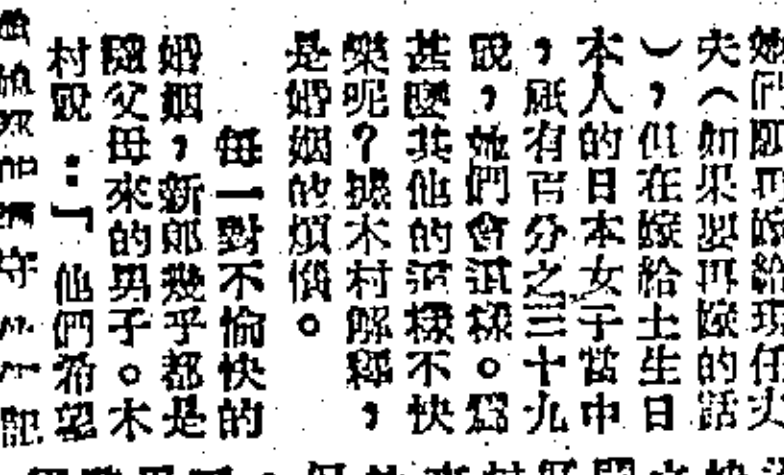 她們願再嫁給現任丈
夫（如果要再嫁的話
），但在嫁給土生日
本人的日本女子當中
，祇有百分之三十九
說，她們會這樣。為
甚麼其他的這樣不快
樂呢？據木村解釋，
是婚姻的煩惱。
每一對不愉快的
婚姻，新郎幾乎都是
隨父母來的男子。木
村說：「他們希望